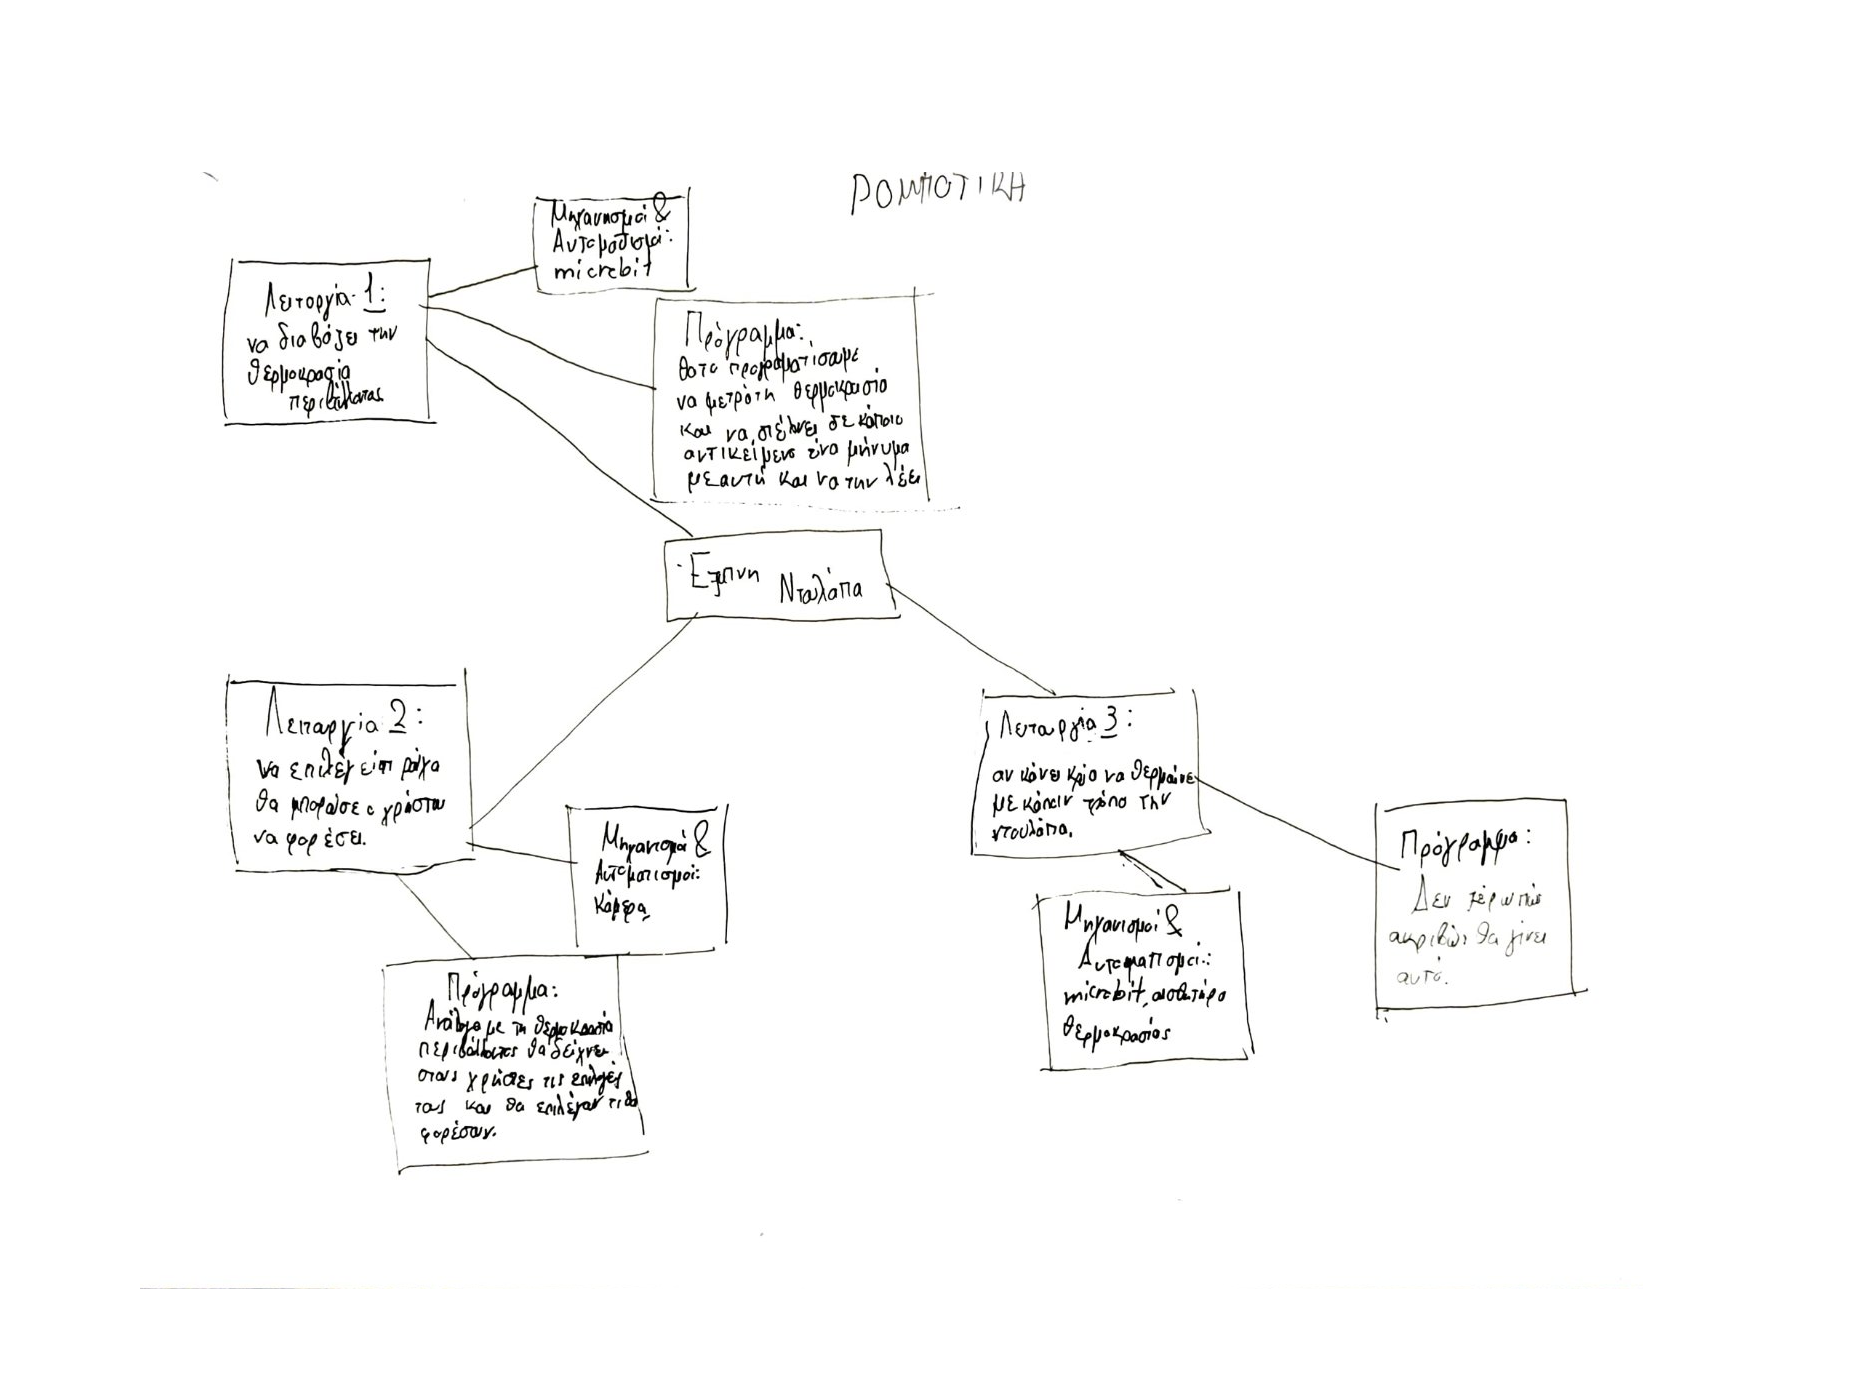 ΡΟΜΠΟΤΙΚΗ
Μηχανισμοί &
Αυτοματισμοί:
microbit
Λειτοργία 1:
να διαβάζει την
θερμοκρασία
περιβάλλοντος
Πρόγραμμα:
θα το προγραμματίσουμε
να μετρά τη θερμοκρασία
και να στέλνει σε κάποιο
αντικείμενο ένα μήνυμα
με αυτή και να την λέει
Εξυπνη Ντουλάπα
Λειτουργία 2:
να επιλέγει τι ρούχα
θα μπορούσε ο χρήστης
να φορέσει.
Μηχανισμοί &
Αυτοματισμοί:
κάμερα
Πρόγραμμα:
Ανάλογα με τη θερμοκρασία
περιβάλλοντος θα δείχνει
στους χρήστες τις επιλογές
τους και θα επιλέγουν τι θα
φορέσουν.
Λειτουργία 3:
αν κάνει κρύο να θερμαίνει
με κάποιν τρόπο την
ντουλάπα.
Μηχανισμοί &
Αυτοματισμοί:
microbit, αισθητήρα
θερμοκρασίας
Πρόγραμμα:
Δεν ξέρω πώς
ακριβώς θα γίνει
αυτό.